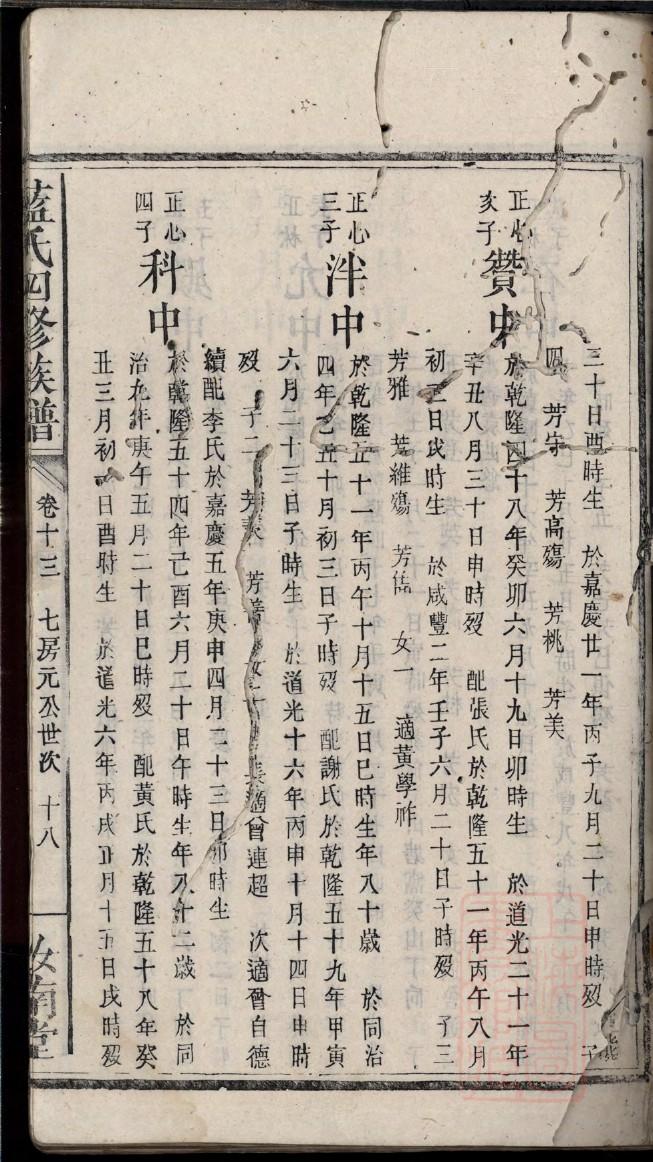 三十日酉時生　於嘉慶廿一年丙子九月二十日申時殁　子
四　芳守　芳高殤　芳桃　芳美
正心
亥子
贊中
於乾隆四十八年癸卯六月十九日卯時生　於道光二十一年
辛丑八月三十日申時殁　配張氏於乾隆五十一年丙午八月
初三日戌時生　於咸豐二年壬子六月二十日子時殁　子三
芳雅　芳維殤　芳儒　女一　適黃學祚
正心
三子
泮中
於乾隆五十一年丙午十月十五日巳時生年八十歲　於同治
四年乙丑十月初三日子時殁　配謝氏於乾隆五十九年甲寅
六月二十三日子時生　於道光十六年丙申十月十四日申時
殁　子二　芳　芳善　女二　長適曾連超　次適曾自德
續配李氏於嘉慶五年庚申四月二十三日卯時生
正心
四子
科中
於乾隆五十四年己酉六月二十日午時生年八十二歲　於同
治九年庚午五月二十日巳時殁　配黃氏於乾隆五十八年癸
丑三月初日酉時生　於道光六年丙戌正月十五日戌時殁
藍氏四修族譜　卷十三　七房元公世次　十八　汝南堂